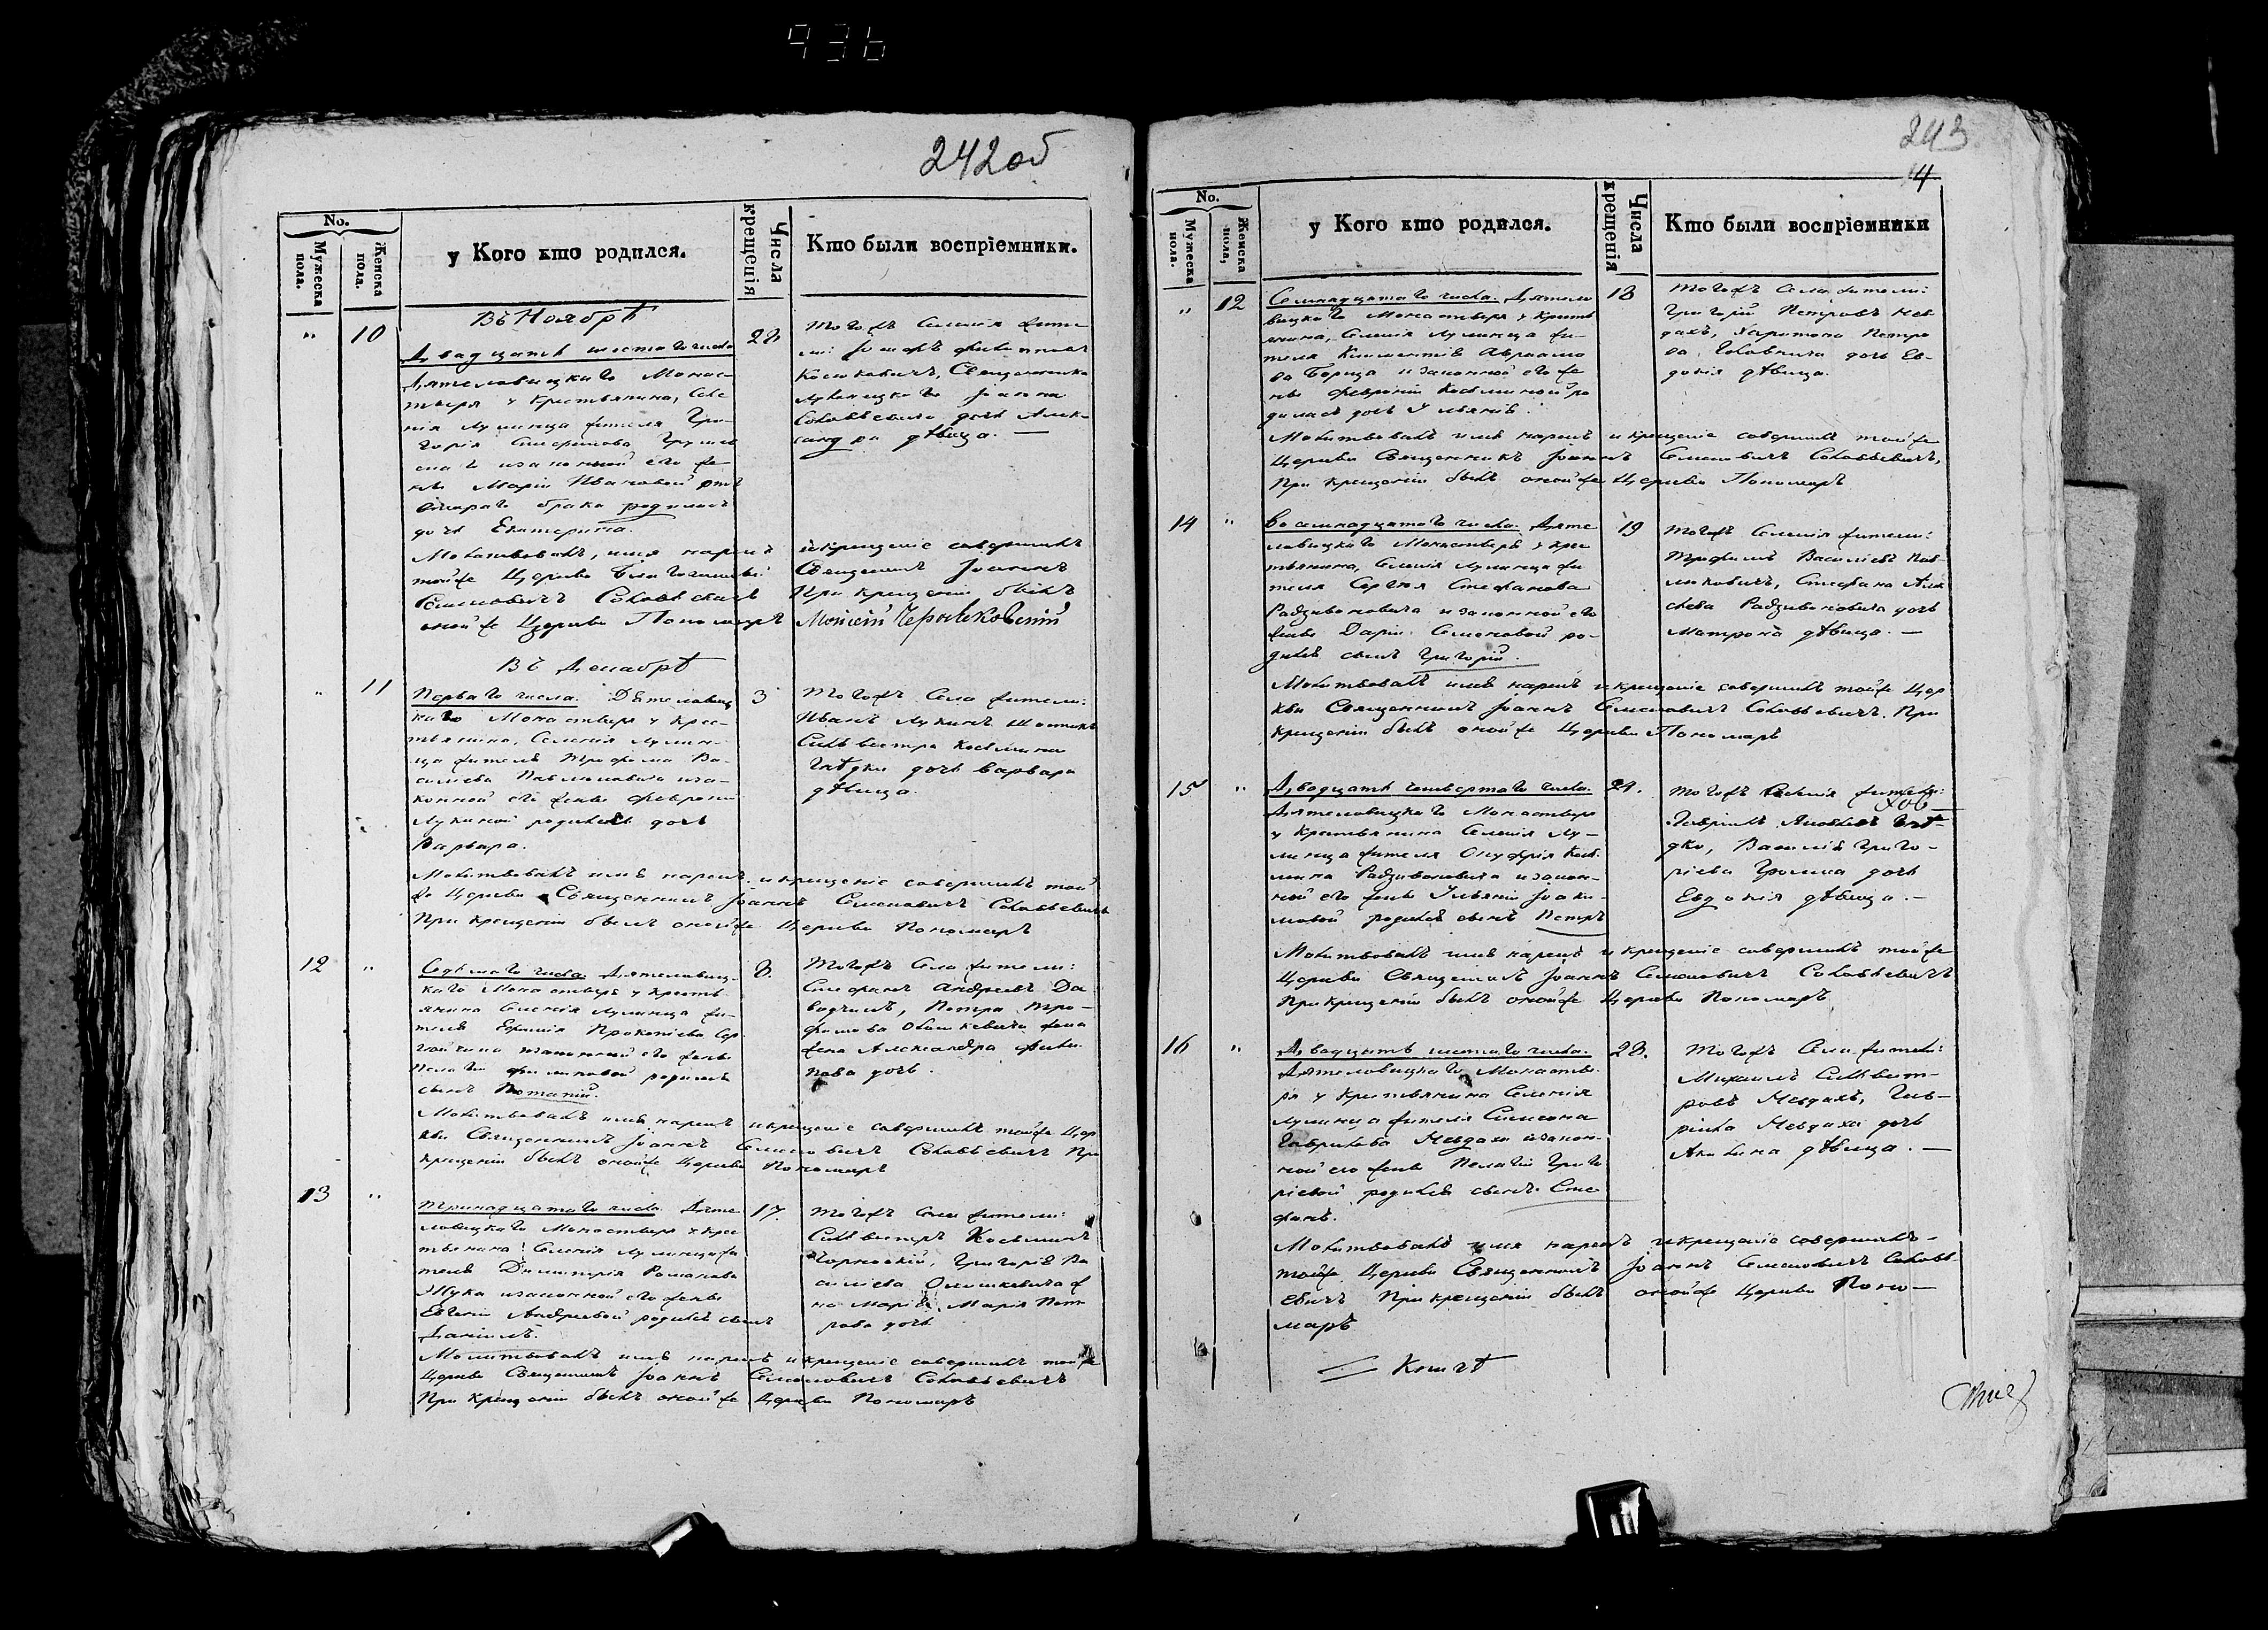 936
242об
No.
Мужеска пола.
Женска пола.
у Кого кто родился.
Числа крещенія
Кто были воспріемники.
Въ Ноябрѣ
" 10
Двадцать шестаго числа
Дятеловицкаго Монас-
тыря у крестьянина, Селе
нія Лулинца жителя Гри-
горія
и законной его же-
нѣ Маріи Ивановой отъ
втораго брака родилась
дочь Екатерина.
28.
Тогожъ Селенія жите
ли:
Косцюкевичъ, Священника
Лулинецкаго Іоанна
Соловьевича дочь Алек-
сандра дѣвица. —
Молитвовалъ, имя нарекъ и крещеніе совершилъ
тойже Церкви Благочинный Священникъ Іоаннъ
Семеновичъ Соловьевичъ При крещеніи былъ
оной же Церкви Пономаръ Моисей
Въ Декабрѣ
" 11
Перваго числа. Дятеловиц
каго Монастыря у крес-
тьянина, Селенія Лулин-
ца жителя Трофима Ва-
силіева Павлюковича иза-
конной его жены Февроніи
Лукиной родилась дочь
Варвара.
3
Тогожъ Села жители:
Иванъ Лукинъ
Сильвестра Косьмина
Гнѣдки дочь Варвара
дѣвица.
Молитвовалъ имя нарекъ и крещеніе совершилъ той
же Церкви Священникъ Іоаннъ Семеновичъ Соловьевичъ
При крещеніи былъ онойже Церкви Пономаръ
12 "
Седьмаго числа. Дятеловиц-
каго Монастыря у кресть-
янина Селенія Лулинца жи-
теля Ефимія Прокопіева
изаконной его жены
Пелагіи Филиповой родился
сынъ Потапій.
8.
Тогожъ Села жители:
Стефанъ Андреевъ Да
видчикъ, Петра Тро-
фимова жена
Александра Фили-
пова дочь.
Молитвовалъ имя нарекъ и крещеніе совершилъ тойже Цер
кви Священникъ Іоаннъ Семеновичъ Соловьевичъ При
крещеніи былъ онойже Церкви Пономаръ
13 "
Тринадцатаго числа. Дяте
ловицкаго Монастыря у крес
тьянина Селенія Лулинца жи
теля Димитрія Романова
Жука изаконной его жены
Евгеніи Андреевой родился сынъ
Даніилъ.
17.
Тогожъ Села жители:
Сильвестръ Косьминъ
Чорновскій, Григорія Ва
силіева Олешкевича же
на Марія Пет-
рова дочь
Молитвовалъ имя нарекъ и крещеніе совершилъ тойже
Церкви Священникъ Іоаннъ Семеновичъ Соловьевичъ
При крещеніи былъ онойже Церкви Пономаръ
243
4
No.
Мужеска пола.
Женска пола,
у Кого кто родился.
Числа крещенія
Кто были воспріемники
" 12
Семнадцатаго числа. Дятело
вицкаго Монастыря у кресть
янина, Селенія Лулинца жи-
теля Климентія Авраамо
ва Борица изаконной его же
нѣ Февроніи Косьминой ро
дилась дочь Ульянія.
18
Тогожъ Села жители:
Григорій Петровъ Мев
дахъ, Харитона Петро
ва дочь Ев-
докія дѣвица.
Молитвовалъ имя нарекъ и крещеніе совершилъ тойже
Церкви Священникъ Іоаннъ Семеновичъ Соловьевичъ,
При крещеніи былъ онойже Церкви Пономаръ
14 "
Восемнадцатаго числа. Дяте
ловицкаго Монастыря у крес
тьянина, Селенія Лулинца жи
теля Сергѣя Стефанова
Радзивоновича изаконной его
жены Даріи Семеновой ро-
дился сынъ Григорій.
19
Тогожъ Селенія жители:
Трофимъ Василіевъ Пав-
люковичъ, Стефана Алек
сѣева Радзивоновича дочь
Матрона дѣвица. —
Молитвовалъ имя нарекъ и крещеніе совершилъ тойже Цер
кви Священникъ Іоаннъ Семеновичъ Соловьевичъ. При
крещеніи былъ онойже Церкви Пономаръ
15 "
Двадцать четвертаго числа.
Дятеловицкаго Монастыря
у крестьянина Селенія Лу-
линца жителя Онуфрія Кось-
мина Радзивоновича изакон-
ной его жены Ульяніи Іоаки-
мовой родился сынъ Петръ
Тогожъ Селенія жители:
Гавріилъ Яковлевъ Гнѣ-
дко, Василія Григо-
ріева дочь
Евдокія дѣвица. —
Молитвовалъ имя нарекъ и крещеніе совершилъ тойже
Церкви Священникъ Іоаннъ Семеновичъ Соловьевичъ
При крещеніи былъ онойже Церкви Пономаръ
16 "
Двадцать шестаго числа.
Дятеловицкаго Монасты-
ря у крестьянина Селенія
Лулинца жителя Симеона
Гаврилова Мевдаха изакон-
ной его жены Пелагіи Григо
ріевой родился сынъ Сте
фанъ.
28.
Тогожъ Села жители:
Михаилъ Сильвест-
ровъ Мевдахъ, Гав-
ріила Мевдаха дочь
Акилина дѣвица. —
Молитвовалъ имя нарекъ и крещеніе совершилъ-
тойже Церкви Священникъ Іоаннъ Семеновичъ Соловь-
евичъ При крещеніи былъ онойже Церкви Поно-
маръ